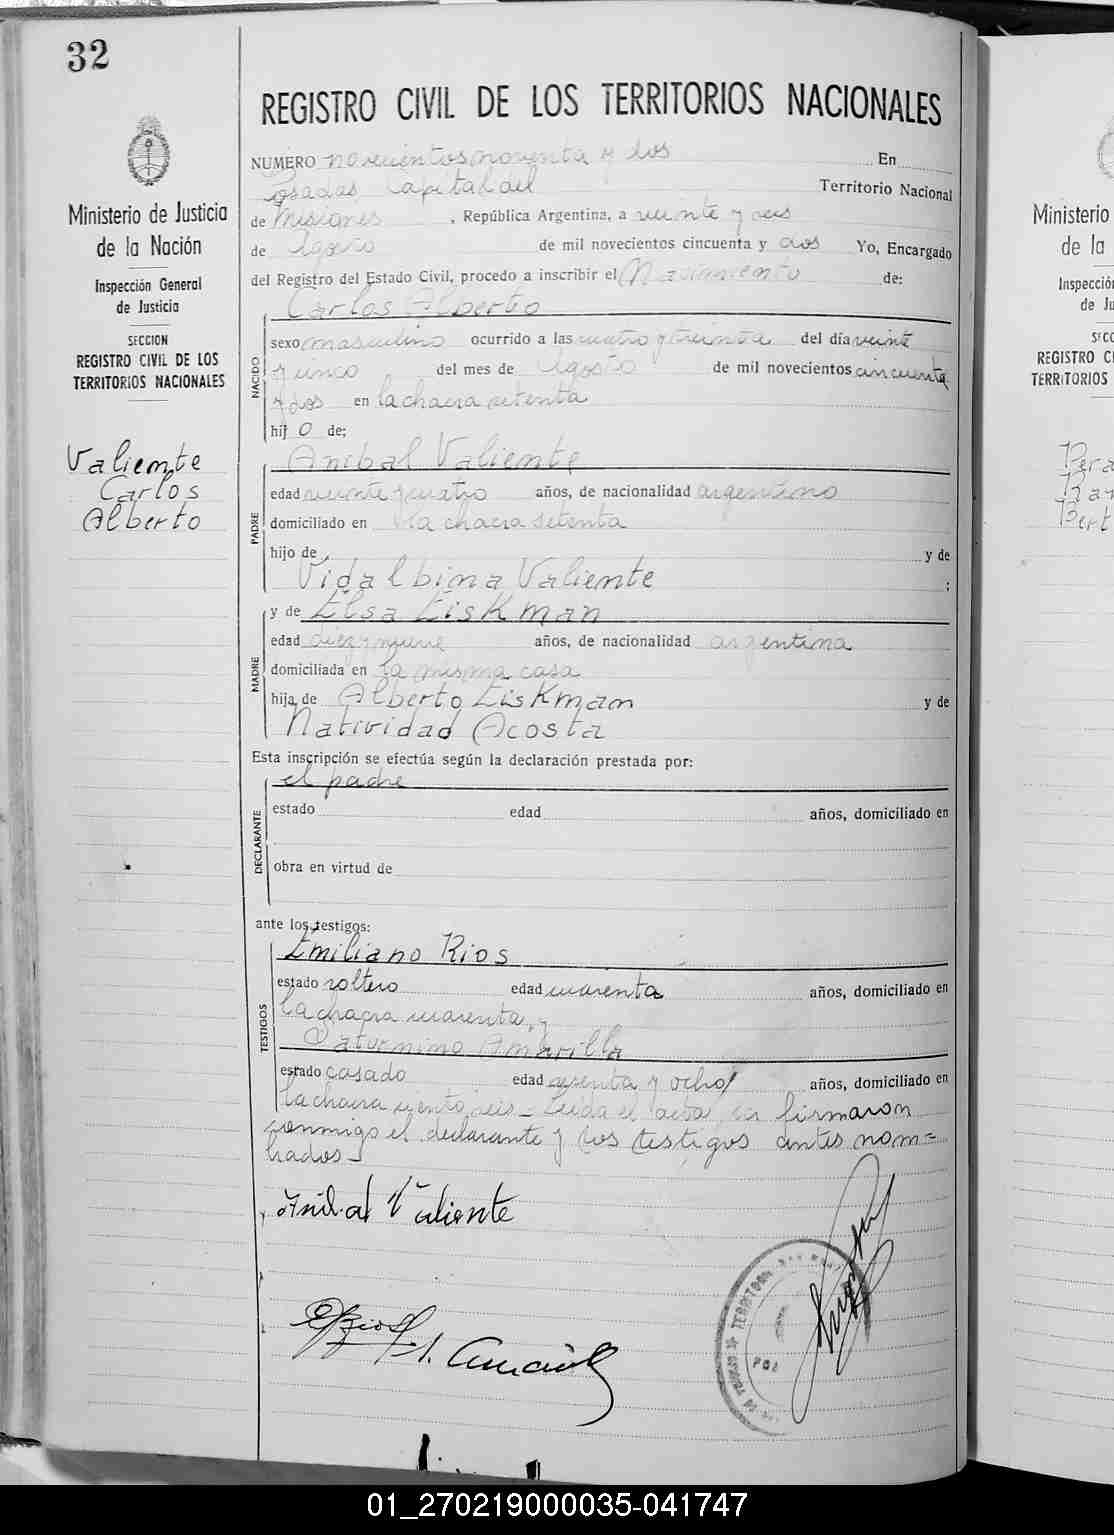 32
REGISTRO CIVIL DE LOS TERRITORIOS NACIONALES
Ministerio de Justicia
de la Nación
Inspección General
de Justicia
SECCION
REGISTRO CIVIL DE LOS
TERRITORIOS NACIONALES
Valiente
Carlos
Alberto
NUMERO novecientos noventa y dos En
Posadas, Capital del Territorio Nacional
de Misiones, República Argentina, a veinte y seis
de Agosto de mil novecientos cincuenta y dos Yo, Encargado
del Registro del Estado Civil, procedo a inscribir el Nacimiento de:
Carlos Alberto
NACIDO
sexo masculino ocurrido a las cuatro y treinta del día veinte
y cinco del mes de Agosto de mil novecientos cincuenta
y dos en la chacra setenta
hijo de;
Anibal Valiente
PADRE
edad veinte y cuatro años, de nacionalidad argentino
domiciliado en la chacra setenta
hijo de y de
Vidalbina Valiente ;
y de Elsa Eiskman
MADRE
edad diez y nueve años, de nacionalidad argentina
domiciliada en la misma casa
hija de Alberto Eiskman y de
Natividad Acosta
Esta inscripción se efectúa según la declaración prestada por:
el padre
DECLARANTE
estado edad años, domiciliado en
obra en virtud de
ante los testigos:
Emiliano Rios
TESTIGOS
estado soltero edad cuarenta años, domiciliado en
la chacra cuarenta, y
Saturnino Amarilla
estado casado edad sesenta y ocho años, domiciliado en
la chacra ciento seis - Leída el acta, la firmaron
conmigo el declarante y los testigos antes nom=
brados-
Anibal Valiente
E Rios
S. Amarilla
Ministerio
de la
Inspección
de Ju
SECC
REGISTRO CI
TERRITORIOS
Pera
Ram
Bert
01_270219000035-041747